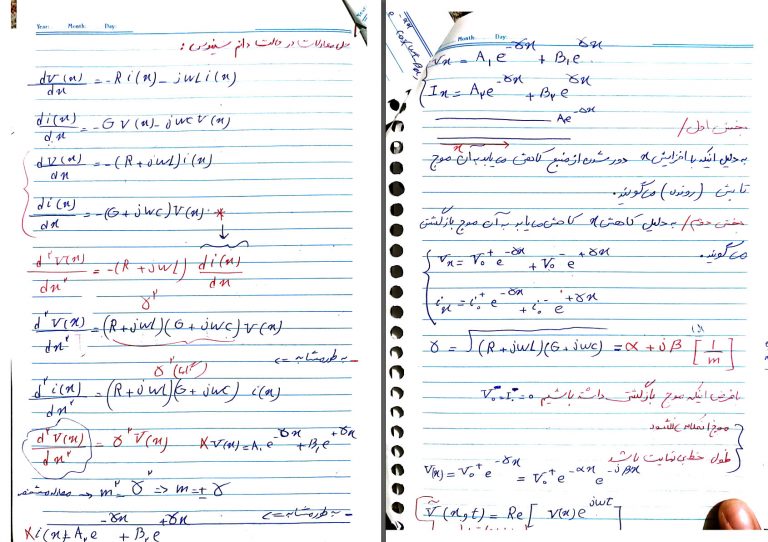 Year: Month: Day:
حل معادلات در حالت دائم سینوسی:
dV(x)/dx = -Ri(x) - jωLi(x)
di(x)/dx = -GV(x) - jωcV(x)
dV(x)/dx = -(R+jωL)i(x)
di(x)/dx = -(G+jωc)V(x) *
d²V(x)/dx² = -(R+jωL) di(x)/dx
γ²
d²V(x)/dx² = (R+jωL)(G+jωc)V(x)
γ²
به طور مشابه =>
d²i(x)/dx² = (R+jωL)(G+jωc) i(x)
d²V(x)/dx² = γ²V(x) * V(x) = A₁e^-γx + B₁e^+γx
معادله مشخصه => m² = γ² => m = ±γ
به طور مشابه =>
* i(x) = A₂e^-γx + B₂e^+γx
Month: Day:
Vx = A₁e^-γx + B₁e^γx
Ix = A₂e^-γx + B₂e^γx
Ae^-αx
x
بخش اول/
به دلیل اینکه با افزایش x دور شدن از منبع کاهش می یابد به آن موج
تابش (رونده) می گویند.
بخش دوم/ به دلیل کاهش x کاهش می یابد به آن موج بازگشتی
می گویند.
Vx = V₀⁺e^-γx + V₀⁻e^+γx
ix = i₀⁺e^-γx + i₀⁻e^+γx
γ = √(R+jωL)(G+jωc) = α + jβ [1/m]
با فرض اینکه موج بازگشتی داشته باشیم V₀⁻=I₀⁻=0
موج انعکاس نشود
طول خط بی نهایت باشد
V(x) = V₀⁺e^-γx = V₀⁺e^-αx e^-jβx
Ṽ(x,t) = Re[V(x)e^jωt]